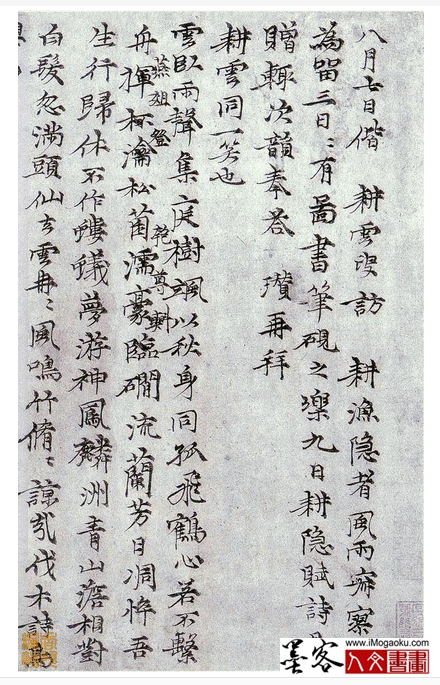 八月七日偕 耕雲叟訪 耕漁隱者風雨寂寥
為留三日〻有圖書筆硯之樂九日耕隱賦詩見
贈輒次韻奉答 瓚再拜
耕雲同一笑也
雲臥雨聲集庭樹颯以秋身同孤飛鶴心若不繫
燕俎登 匏尊斟
舟揮杯瀹松菊濡豪臨磵流蘭芳日凋悴吾
生行歸休不作螻蟻夢游神鳳麟洲青山澹相對
白髮忽滿頭仙去雲冉〻風鳴竹脩〻諒哉伐木詩
墨客
www.iMogaoku.com
人文書畫